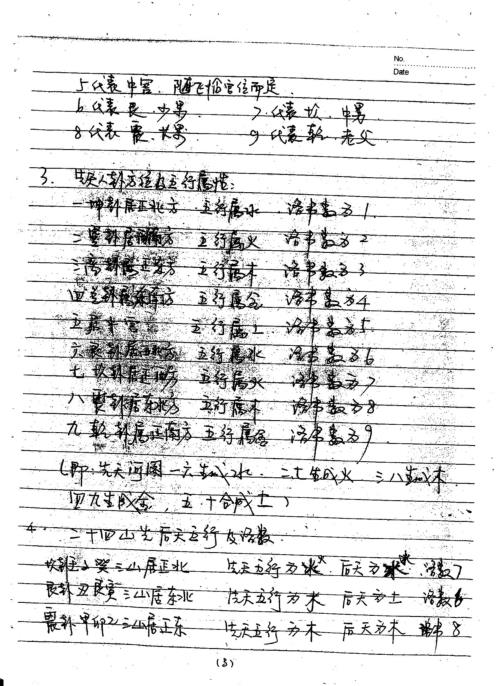 No.
Date
5代表中宫．随飞临宫位而定．
6代表艮．少男 7.代表坎．中男
8代表震．长男 9代表乾．老父
3. 先天八卦方位及五行属性:
一坤卦居正北方 五行属水 洛书数为1.
二巽卦居西南方 五行属火 洛书数为2
三离卦居正东方 五行属木 洛书数为3
四兑卦居东南方 五行属金 洛书数为4
五居中宫 五行属土 洛书数为5
六艮卦居西北方 五行属水 洛书数为6
七坎卦居正西方 五行属火 洛书数为7
八震卦居东北方 五行属木 洛书数为8
九乾卦居正南方 五行属金 洛书数为9.
(即:先天河图一六生成水．二七生成火 三八生成木
四九生成金，五十合成土)
4. 二十四山先后天五行及洛数．
坎卦壬子癸三山居正北 先天五行为火 后天为水 洛数7
艮卦丑艮寅三山居东北 先天五行为水 后天为土 洛数6
震卦甲卯乙三山居正东 先天五行为木 后天为木 洛书8
(3)